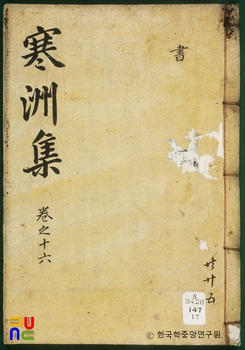 寒洲集
卷之十六
書
共廿五
3428
147
17
FU
ⓒ한국학중앙연구원